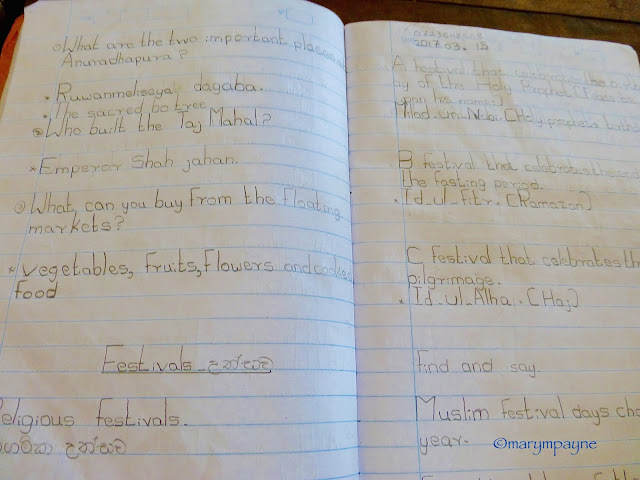 What are the two important places in
Anuradhapura?
* Ruwanmeliseya dagaba.
* The sacred bo tree
Who built the Taj Mahal?
* Emperor Shah jahan.
What can you buy from the floating
markets?
* vegetables, fruits, flowers and cooked
food
Festivals - උත්සව
Religious festivals.
උත්සව
2017.03.
A festival that celebrates the birth
ay of the Holy Prophet
upon his name)
Milad-un-Nabi (Holy prophets birth
B festival that celebrates the end
the fasting period.
* Id-ul-Fitr. (Ramazan)
C festival that celebrates th
pilgrimage.
* Id-ul-Alha. (Haj)
find and say.
Muslim festival days cha
year.
©marympayne